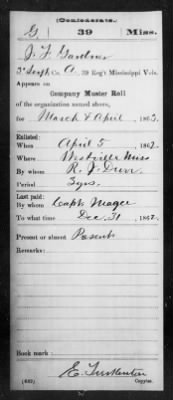 (Confederate.)
G 39 Miss.
J. F. Gardner
3d Sergt, Co. A, 39 Reg't Mississippi Vols.
Appears on
Company Muster Roll
of the organization named above,
for March & April, 1863.
Enlisted:
When April 5, 1862.
Where Westville Miss
By whom R. J. Durr
Period 3 yrs.
Last paid:
By whom Capt. Magee
To what time Dec. 31, 1862.
Present or absent Present
Remarks:
Book mark:
(642) Copyist.